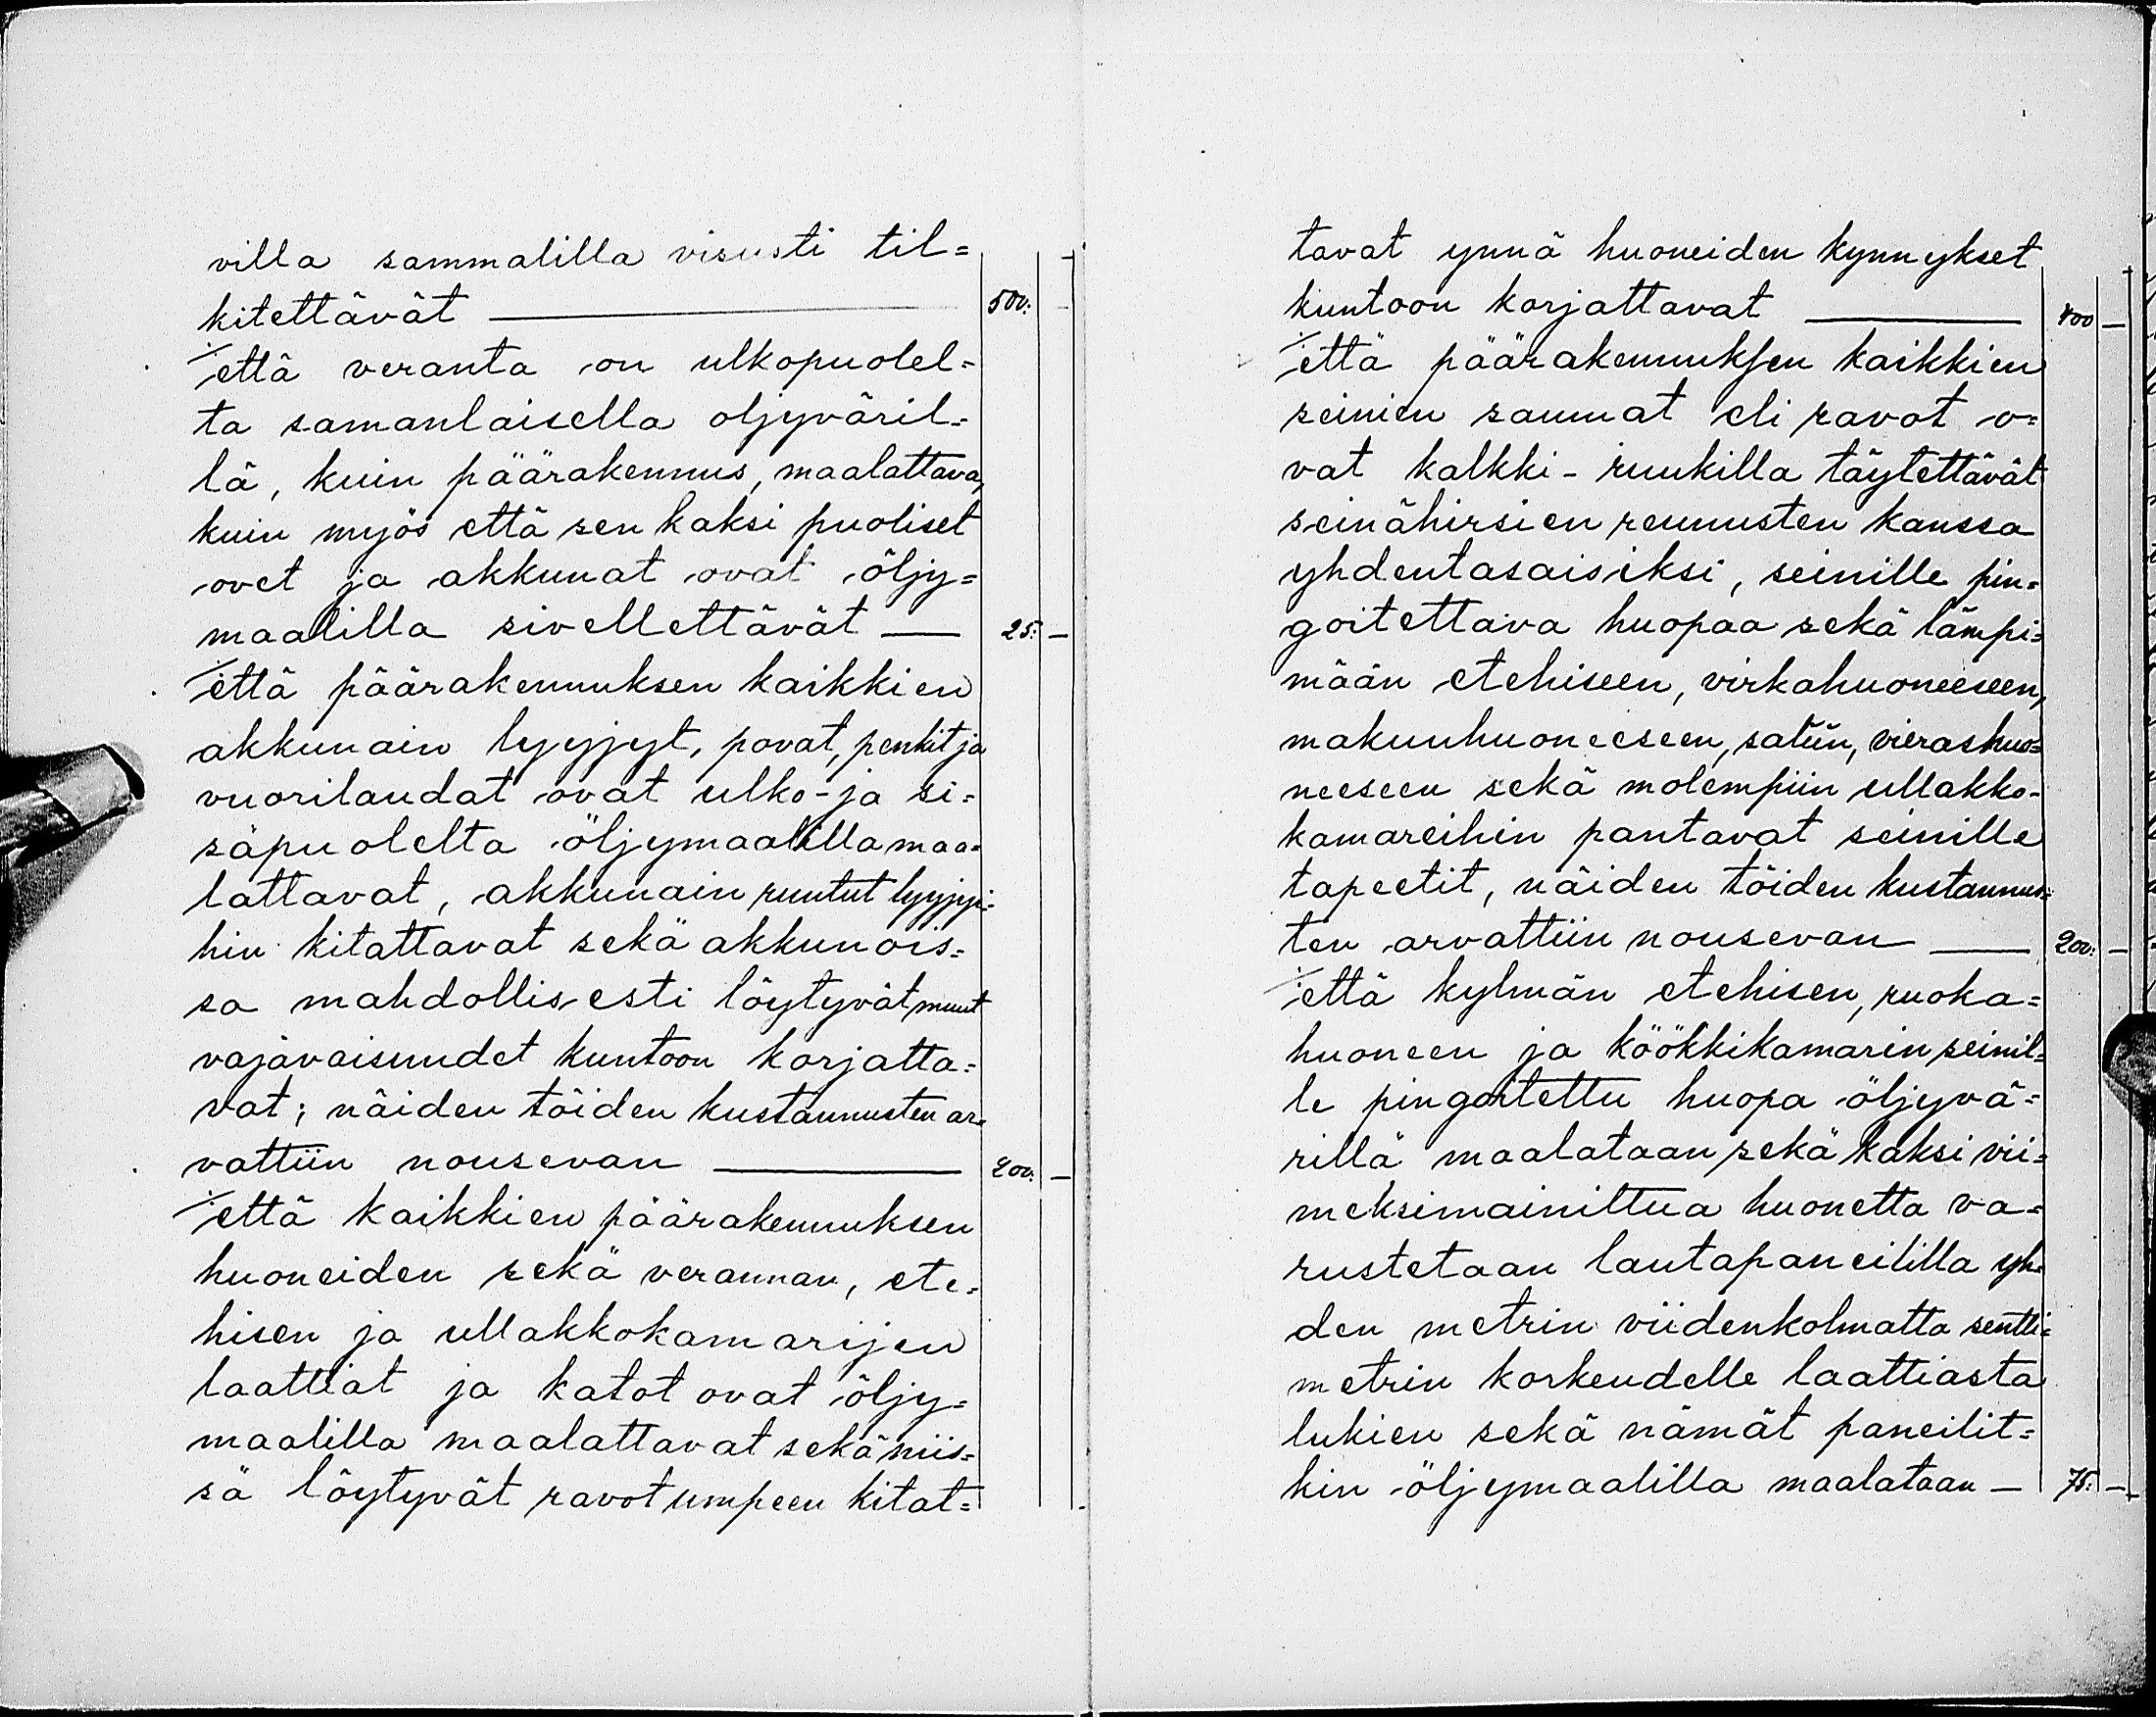 villa sammalilla visusti til=
kitettävät — 500: —
että veranta on ulkopuolel=
ta samanlaisella oljyväril=
lä, kuin päärakennus, maalattava,
kuin myös että sen kaksi puoliset
ovet ja akkunat ovat öljy=
maalilla sivellettävät — 25: —
että päärakennuksen kaikkien
akkunain lyyjyt, povat, penkit ja
vuorilaudat ovat ulko- ja si=
säpuolelta öljymaalilla maa=
lattavat, akkunain ruutut lyyjyi=
hin kitattavat sekä akkunois=
sa mahdollisesti löytyvät muut
vajavaisuudet kuntoon korjatta=
vat; näiden töiden kustannusten ar=
vattiin nousevan — 200: —
että kaikkien päärakennuksen
huoneiden sekä verannan, ete=
hisen ja ullakkokamarijen
laattiat ja katot ovat öljy=
maalilla maalattavat sekä niis=
sä löytyvät ravot umpeen kitat=
tavat ynnä huoneiden kynnykset
kuntoon korjattavat — 400 —
että päärakennuksen kaikkien
seinien saumat eli ravot o=
vat kalkki-ruukilla täytettävät
seinähirsien reunusten kanssa
yhdentasaisiksi, seinille pin=
goitettava huopaa sekä lämpi=
mään etehiseen, virkahuoneeseen,
makuuhuoneeseen, saliin, vierashuo=
neeseen sekä molempiin ullakko=
kamareihin pantavat seinille
tapeetit, näiden töiden kustannus=
ten arvattiin nousevan — 200: —
että kylmän etehisen, ruoka=
huoneen ja köökkikamarin seinil=
le pingoitettu huopa öljyvä=
rillä maalataan sekä kaksi vii=
meksimainittua huonetta va=
rustetaan lautapaneililla yh=
den metrin viidenkolmatta sentti=
metrin korkeudelle laattiasta
lukien sekä nämät paneilit=
kin öljymaalilla maalataan — 75: —